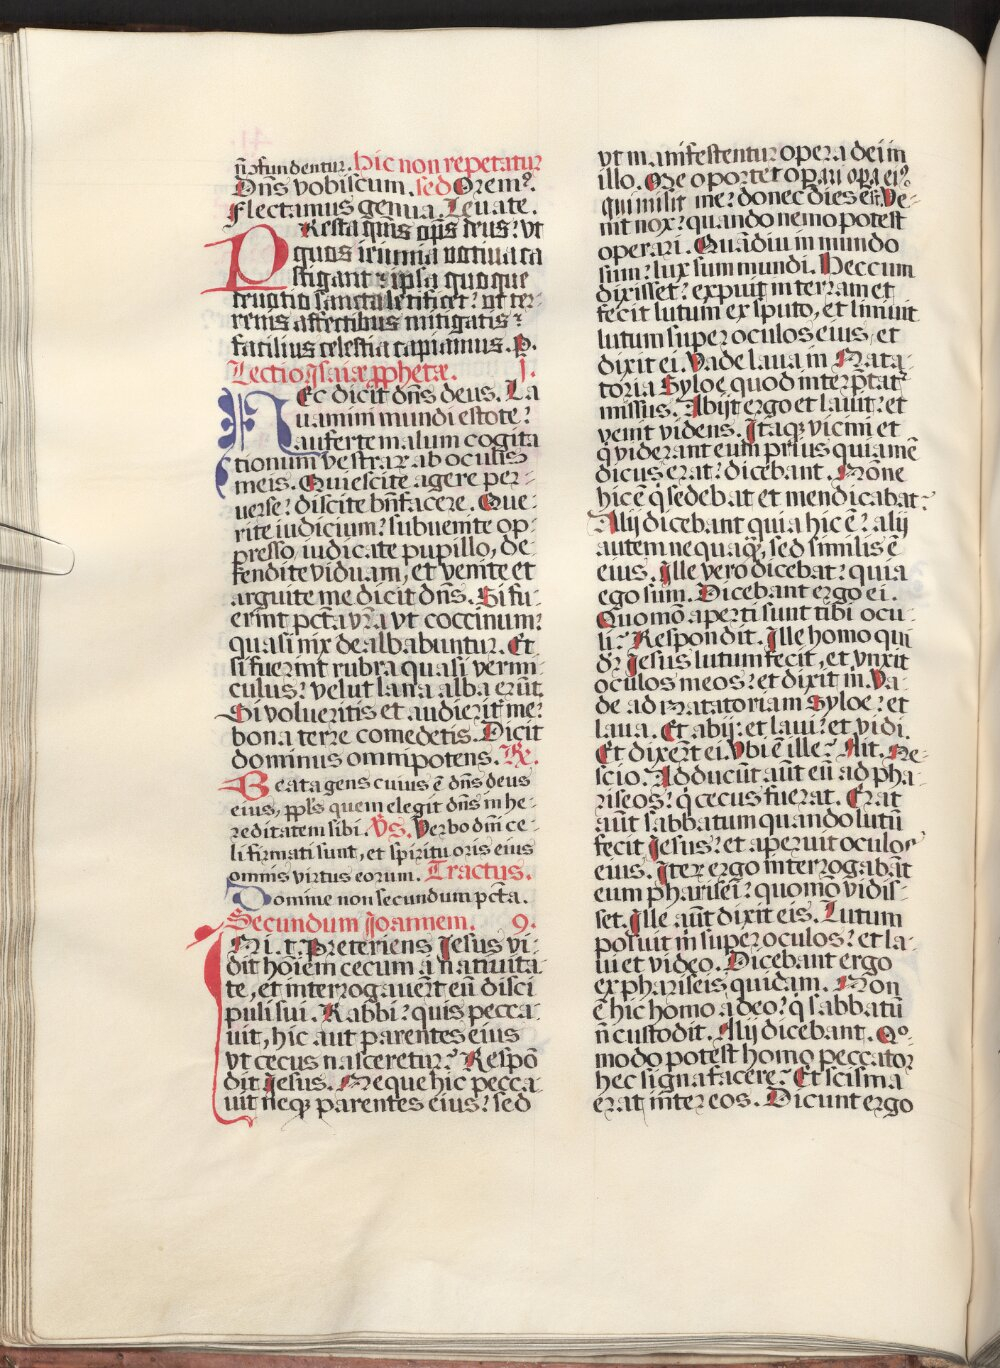 n̄ ꝯfundentur. Hic non repetatur
Dn̄s vobiscum. sed Oremꝰ.
Flectamus genua. Leuate.
PResta qs̄ om̄ps deus? vt
quos ieiunia votiua ca
stigant ipsa quoque
deuotio sancta letificet? vt ter-
renis affectibus mitigatis?
facilius celestia capiamus. P.
Lectio Isaiæ ꝓphetæ. 1.
HEc dicit dn̄s deus. La
uamini mundi estote?
auferte malum cogita
tionum vestraꝝ ab oculis
meis. Quiescite agere per-
uerse? discite bn̄facere. Que-
rite iudicium? subuenite op-
presso, iudicate pupillo, de-
fendite viduam, et venite et
arguite me dicit dn̄s. Si fu-
erint pct̄a vr̄a vt coccinum?
quasi nix dealbabuntur. Et
si fuerint rubra quasi vermi-
culus? velut lana alba erūt.
Si volueritis et audierit̄ me?
bona terre comedetis. Dicit
dominus omnipotens. ℞.
Beata gens cuius ē dn̄s deus
eius, ppl̄s quem elegit dn̄s in he-
reditatem sibi. Vs. Verbo dn̄i ce-
li firmati sunt, et spiritu oris eius
omnis virtus eorum. Tractus.
Domine non secundum pct̄a.
Secundum Joannem. 9.
IN i. t. Preteriens Jesus vi-
dit hoīem cecum a natiuita-
te, et interrogauer̄t eū disci
puli sui. Rabbi? quis pecca-
uit, hic aut parentes eius
vt cecus nasceretur? Respō
dit Jesus. Neque hic pecca-
uit neqꝫ parentes eius? sed
vt manifestentur opera dei in
illo. Me oportet opari opa eiꝰ
qui misit me? donec dies est. Ve-
nit nox? quando nemo potest
operari. Quādiu in mundo
sum? lux sum mundi. Hec cum
dixisset? expuit in terram et
fecit lutum ex sputo, et liniuit
lutum super oculos eius, et
dixit ei. Vade laua in Nata-
toria Syloe quod interp̄tat᷑
missus. Abijt ergo et lauit? et
venit videns. Itaqꝫ vicini et
q̇ viderant eum prius quia mē
dicus erat? dicebant. Nōne
hic ē q̇ sedebat et mendicabat?
Alij dicebant quia hic ē? alij
autem nequaqꝫ, sed similis ē
eius. Ille vero dicebat? quia
ego sum. Dicebant ergo ei.
Quomō aperti sunt tibi ocu-
li? Respondit. Ille homo qui
dr̄ Jesus lutum fecit, et vnxit
oculos meos? et dixit m̄. Va-
de ad Natatoriam Syloe? et
laua. Et abij: et laui? et vidi.
Et dixer̄t ei. Vbi ē ille? Ait. Ne-
scio. Adducūt aūt eū ad pha-
riseos? q̇ cecus fuerat. Erat
aūt sabbatum quando lutū
fecit Jesus? et aperuit oculos
eius. Iteꝝ ergo interrogabāt
eum pharisei? quomō vidis-
set. Ille aūt dixit eis. Lutum
posuit m̄ super oculos? et la-
ui et video. Dicebant ergo
ex phariseis quidam. Non
ē hic homo a deo? q̇ sabbatū
n̄ custodit. Alij dicebant. Qº-
modo potest homo peccator
hec signa facere? Et scisma
erat inter eos. Dicunt ergo